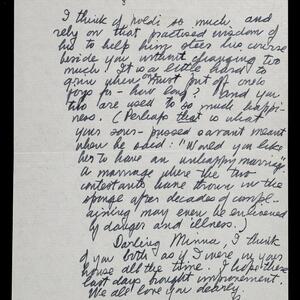 3
I think of Poldi so much, and
rely on that practised wisdom of
his to help him steer his course
beside you without changing too
much. It is a little hard to
grin when must put off one's
for - how long? And you
two are used to so much happi-
ness. (Perhaps that is what
your sour-pussed savant meant
when he said: "Would you like
her to have an unhappy marriage"
a marriage where the two
contestants have thrown in the
sponge after decades of compl-
aining may even be enlivened
by danger and illness.)
Darling Minna, I think
of you both as if I were in your
house all the time. I hope these
last days brought improvement.
We all love you dearly